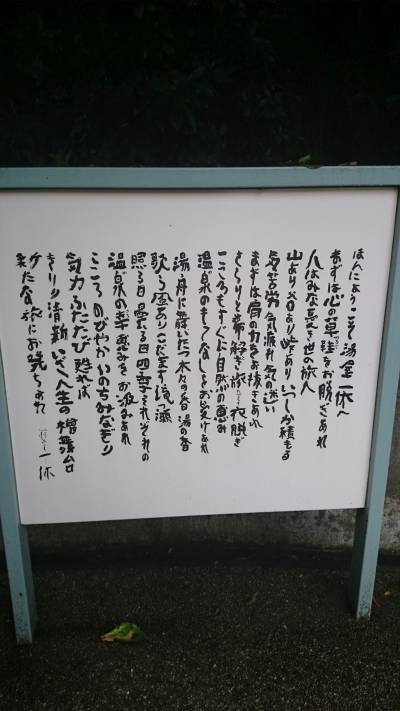 ほんにようこそ 湯屋一休へ
まずは心の草鞋をお脱ぎあれ
人はみな憂き世の旅人
山あり谷あり峠あり いつしか積もる
気苦労 気疲れ 気の迷い
まずは肩の力をお抜きあれ
さらりと帯解き 旅衣脱ぎ
こころもすぐに自然の恵み
温泉のもてなしをお受けあれ
湯舟に舞いたつ木々の香 湯の香
歌う風あり こだます滝つ瀬
照る日曇る日 四季それぞれの
温泉の幸 恵みをお汲みあれ
こころのびやか いのちみなぎり
気力ふたたび甦れば
きりり清新 いざ人生の檜舞台
また食い旅にお発ちあれ 一休